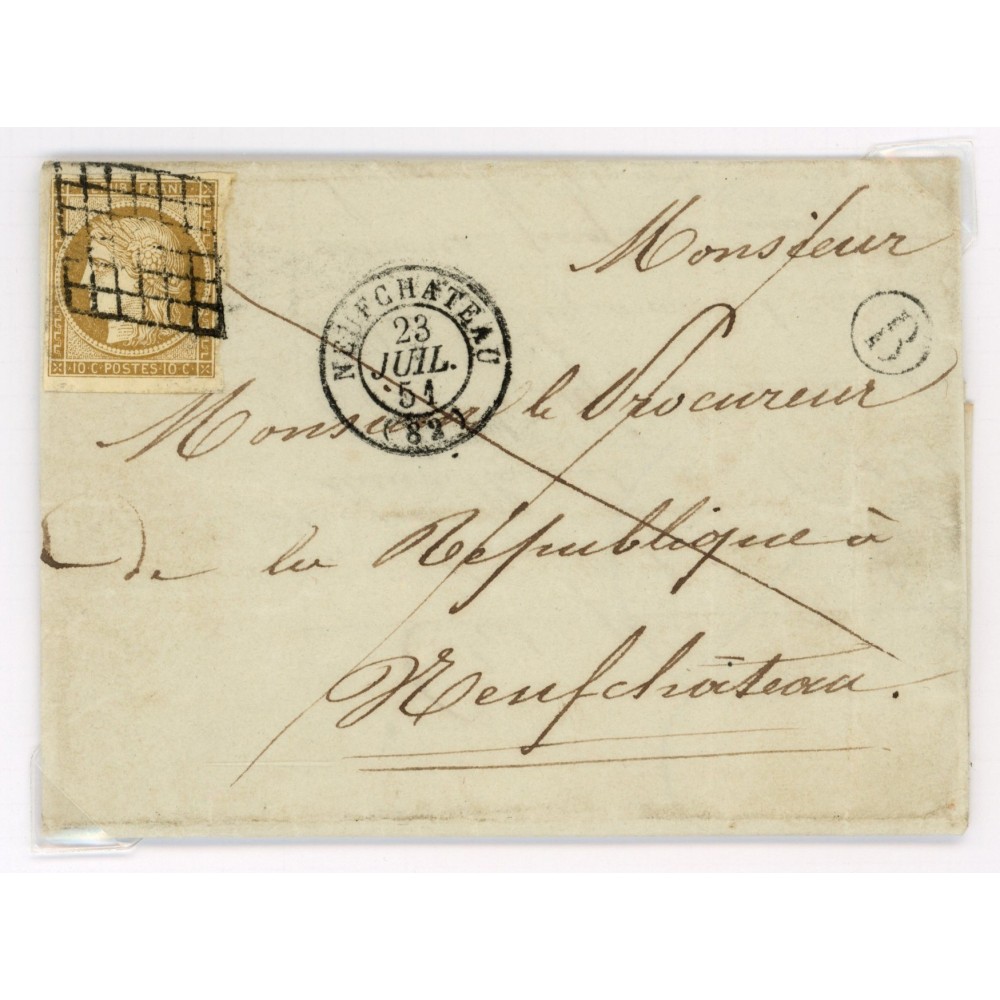 UB FRAN
10 C POSTES 10 C
NEUFCHATEAU
23
JUIL.
51
(82)
B
Monsieur
Monsieur le Procureur
de la République à
Neufchâteau.